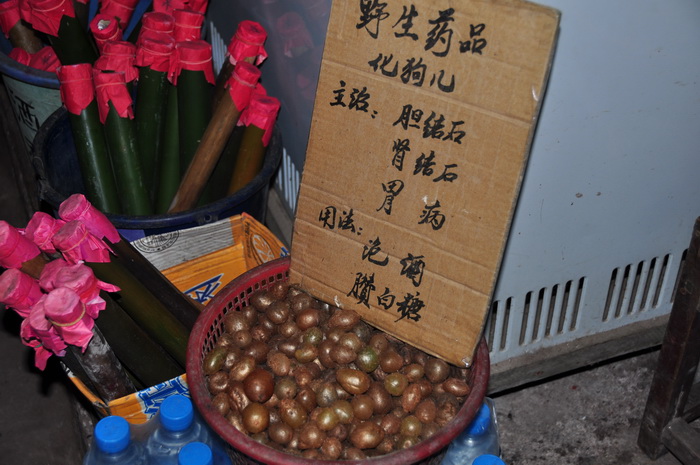 野生药品
化狗儿
主治：胆结石
肾结石
胃病
用法：泡酒
臢白糖